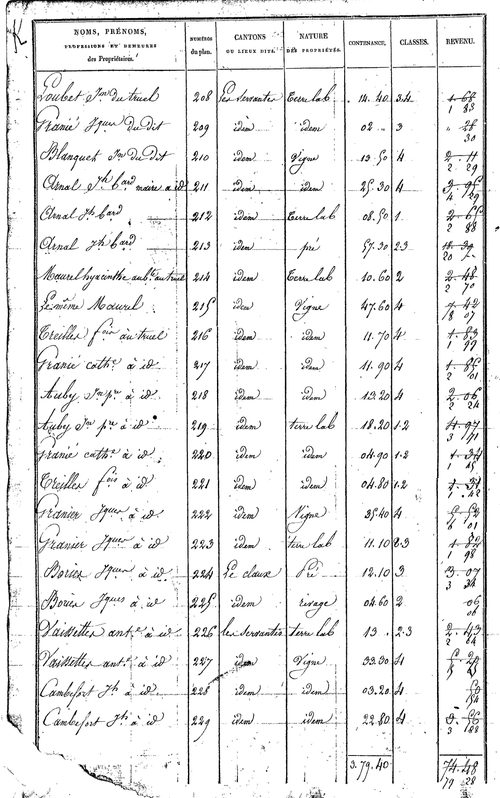 K
NOMS, PRÉNOMS, PROFESSIONS ET DEMEURES des Propriétaires.
NUMÉROS du plan.
CANTONS OU LIEUX DITS.
NATURE DES PROPRIÉTÉS.
CONTENANCE.
CLASSES.
REVENU.
Loubet Jn du truel 208 Les servantes Terre lab 14.40 3.4 1 68 1 83
Granié Jques du dit 209 idem idem 02 3 " 28 30
Blanquet Jn du dit 210 idem Vigne 13.50 4 2 11 2 29
Arnal Jh bard maire a id 211 idem idem 25.30 4 3 95 4 29
Arnal Jh bard 212 idem Terre lab 08.50 1 2 65 2 88
Arnal Jh bard 213 idem pré 57.30 2.3 20
Maurel hyacinthe aubte au truel 214 idem Terre lab 10.60 2 2 48 2 70
Le même Maurel 215 idem Vigne 47.60 4 7 42 8 07
Treilles fois au truel 216 idem idem 11.70 4 1 83 1 99
Granié cathe à id 217 idem idem 11.90 4 1 85 2 01
Auby Jn pre à id 218 idem idem 13.20 4 2 06 2 24
Auby Jn pre à id 219 idem terre lab 18.20 1.2 4 97
Granié cathe à id 220 idem idem 04.90 1.2 1 34 1 45
Treilles fois à id 221 idem idem 04.80 1.2 1 31 1 42
Granier Jques à id 222 idem Vigne 35.40 4 5 53 6 01
Granier Jques à id 223 idem terre lab 11.10 2.3 1 82 1 98
Bories Jques à id 224 Le claux Pré 12.10 3 3 07 3 34
Bories Jques à id 225 idem rivage 04.60 2 06 06
Vaissettes ante à id 226 les servantes terre lab 13 . 2.3 2 43 2 64
Vaissettes ante à id 227 idem Vigne 33.30 4 5 20
Cambefort Jh à id 228 idem idem 03.20 4 50 54
Cambefort Jh à id 229 idem idem 22.80 4 3 56 3 88
3.79.40 74.48
79 28